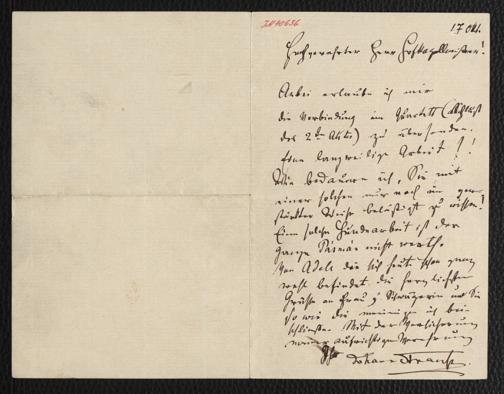 17 Okt.
Hochgeehrter Herr Hofkapellmeister!
Anbei erlaube ich mir
die Verbindung im Quartett (
des 2ten Aktes) zu übersenden.
Eine langweilige Arbeit!!
Wie bedaure ich, Sie mit
einer solchen nur noch im
Weise belästigt zu wissen!
Eine solche Hundearbeit ist der
ganze Pásmán nicht werth.
Von Adele die sich heute schon ganz
wohl befindet die herzlichsten
Grüße an Frau & Schwägerin und Sie
so wie die meinigen ich bei-
schließe. Mit der Versicherung
meiner aufrichtigen Verehrung
Ihr Johann Strauss